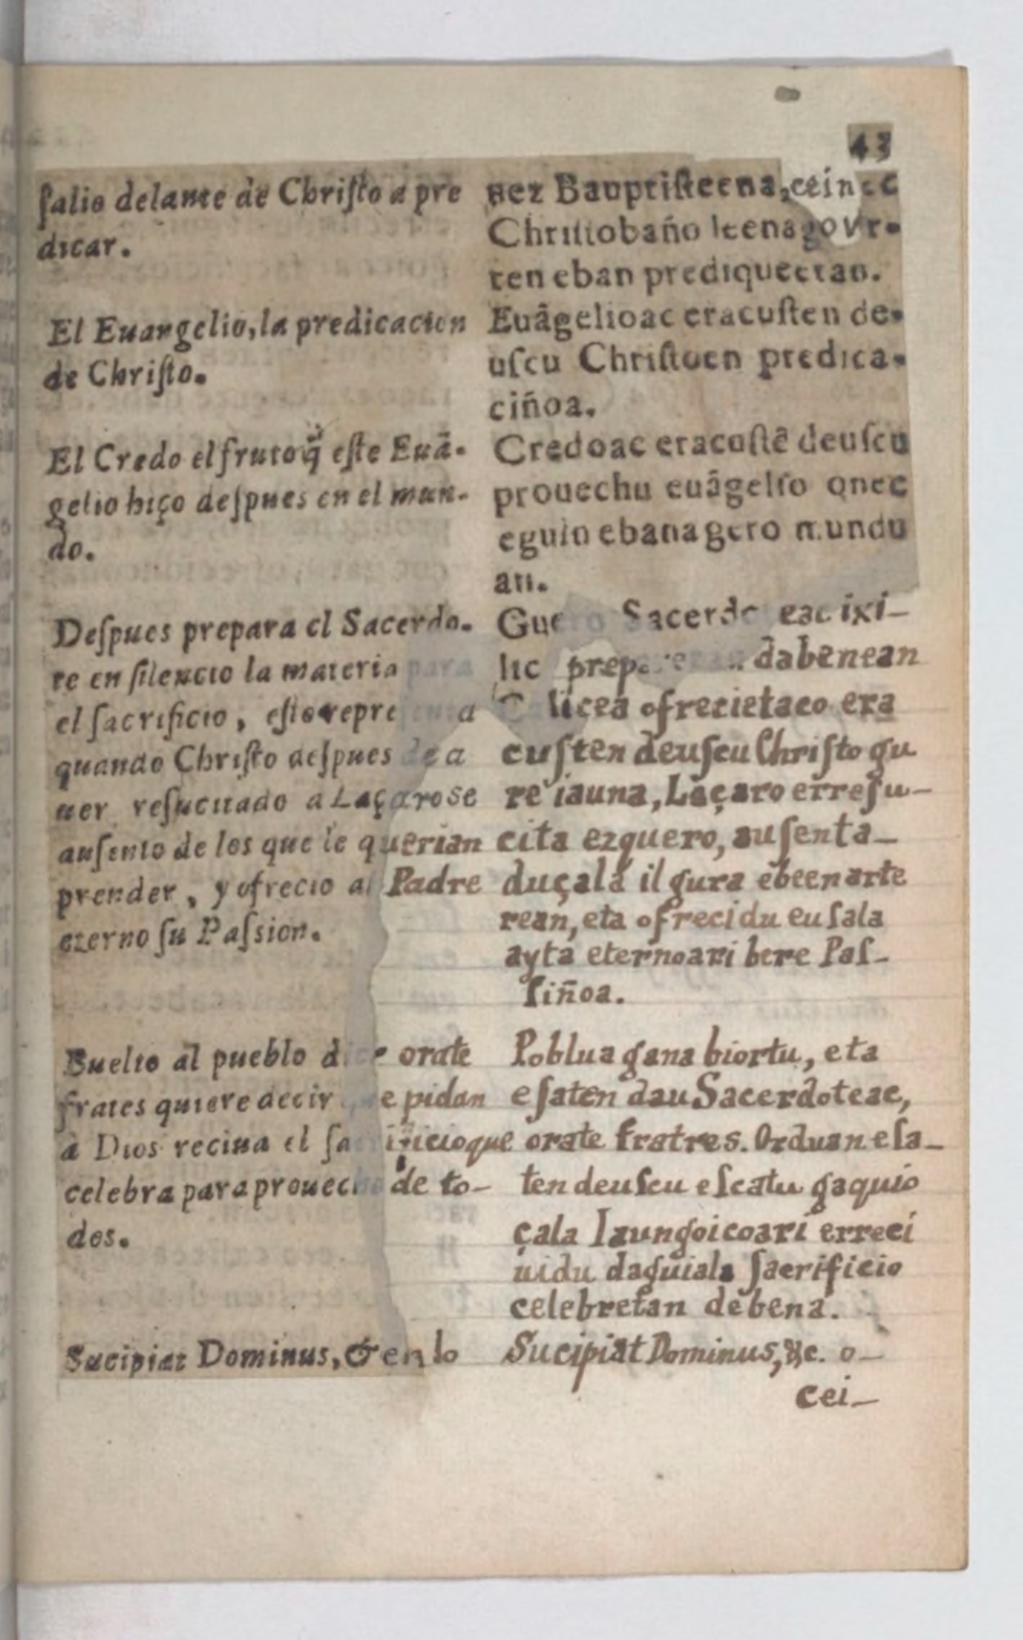 43
ſalio delante de Chriſto a pre
dicar.
El Euangelio, la predicacion
de Chriſto.
El Credo el fruto q̃ eſte Euã-
gelio hiço deſpues en el mun-
do.
Deſpues prepara el Sacerdo-
te en ſilencio la materia para
el ſacrificio, eſto repreſenta
quando Chriſto deſpues de a
uer reſucitado a Laçaro se
auſento de los que le querian
prender, y ofrecio al Padre
eterno ſu Paſsion.
Buelto al pueblo dice orate
frates quiere decir que pidan
a Dios reciua el ſacrificio que
celebra para prouecho de to-
dos.
Sucipiat Dominus, & en lo
nez Bauptiſteena, ceinec
Chriſtobaño leenago vr-
ten eban prediquectan.
Euãgelioac eracuſten de-
uſcu Chriſtoen predica-
ciñoa.
Credoac eracuſtẽ deuſcu
prouechu euãgelio onec
eguin ebana guero mundu
an.
Guero Sacerdoteac ixi-
lic preparetan dabenean
Calicea ofrecietaco era
cuſten deuſcu Chriſto gu
re iauna, Laçaro erreſu-
cita ezquero, auſenta-
duçala il gura ebeen arte
rean, eta ofrecidu euſala
ayta eternoari bere Paſ-
ſiñoa.
Poblua gana biortu, eta
eſaten dau Sacerdoteac,
orate fratres. Orduan eſa-
ten deuſcu eſcatu gaquio
çala Iaungoicoari erreci
uidu daguiala ſacrificio
celebretan debena.
Sucipiat Dominus, &c. o-
cei-